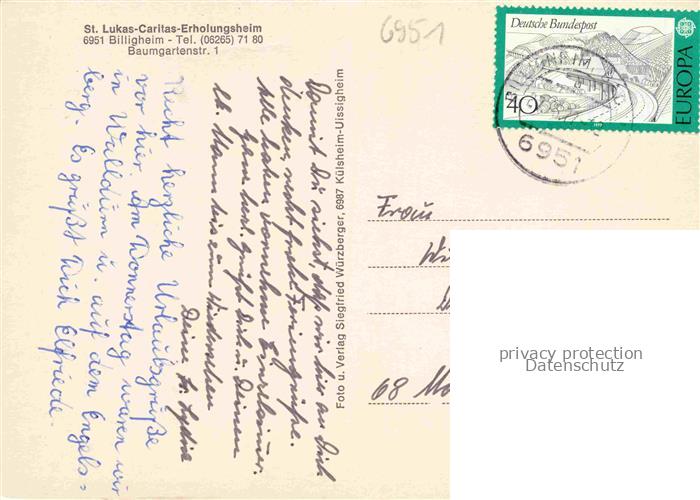 St. Lukas-Caritas-Erholungsheim
6951 Billigheim - Tel. (06265) 71 80
Baumgartenstr. 1
6951
Deutsche Bundespost
40
EUROPA
6951
Damit Du siehst, daß wir hier an Dich
denken, recht frohe Feriengrüße.
Alle haben vornehme Einzelzimmer.
Ganz herzl. grüßt Dich u. Deinen
lb. Mann bis zum Wiedersehen
Deine Sr. Lydia
Recht herzliche Urlaubsgrüße
von hier. Am Donnerstag waren wir
in Walldürn u. auf dem Engels=
berg. Es grüßt Dich Elfriede.
Foto u. Verlag Siegfried Würzberger, 6987 Külsheim-Uissigheim
Frau
68
privacy protection
Datenschutz